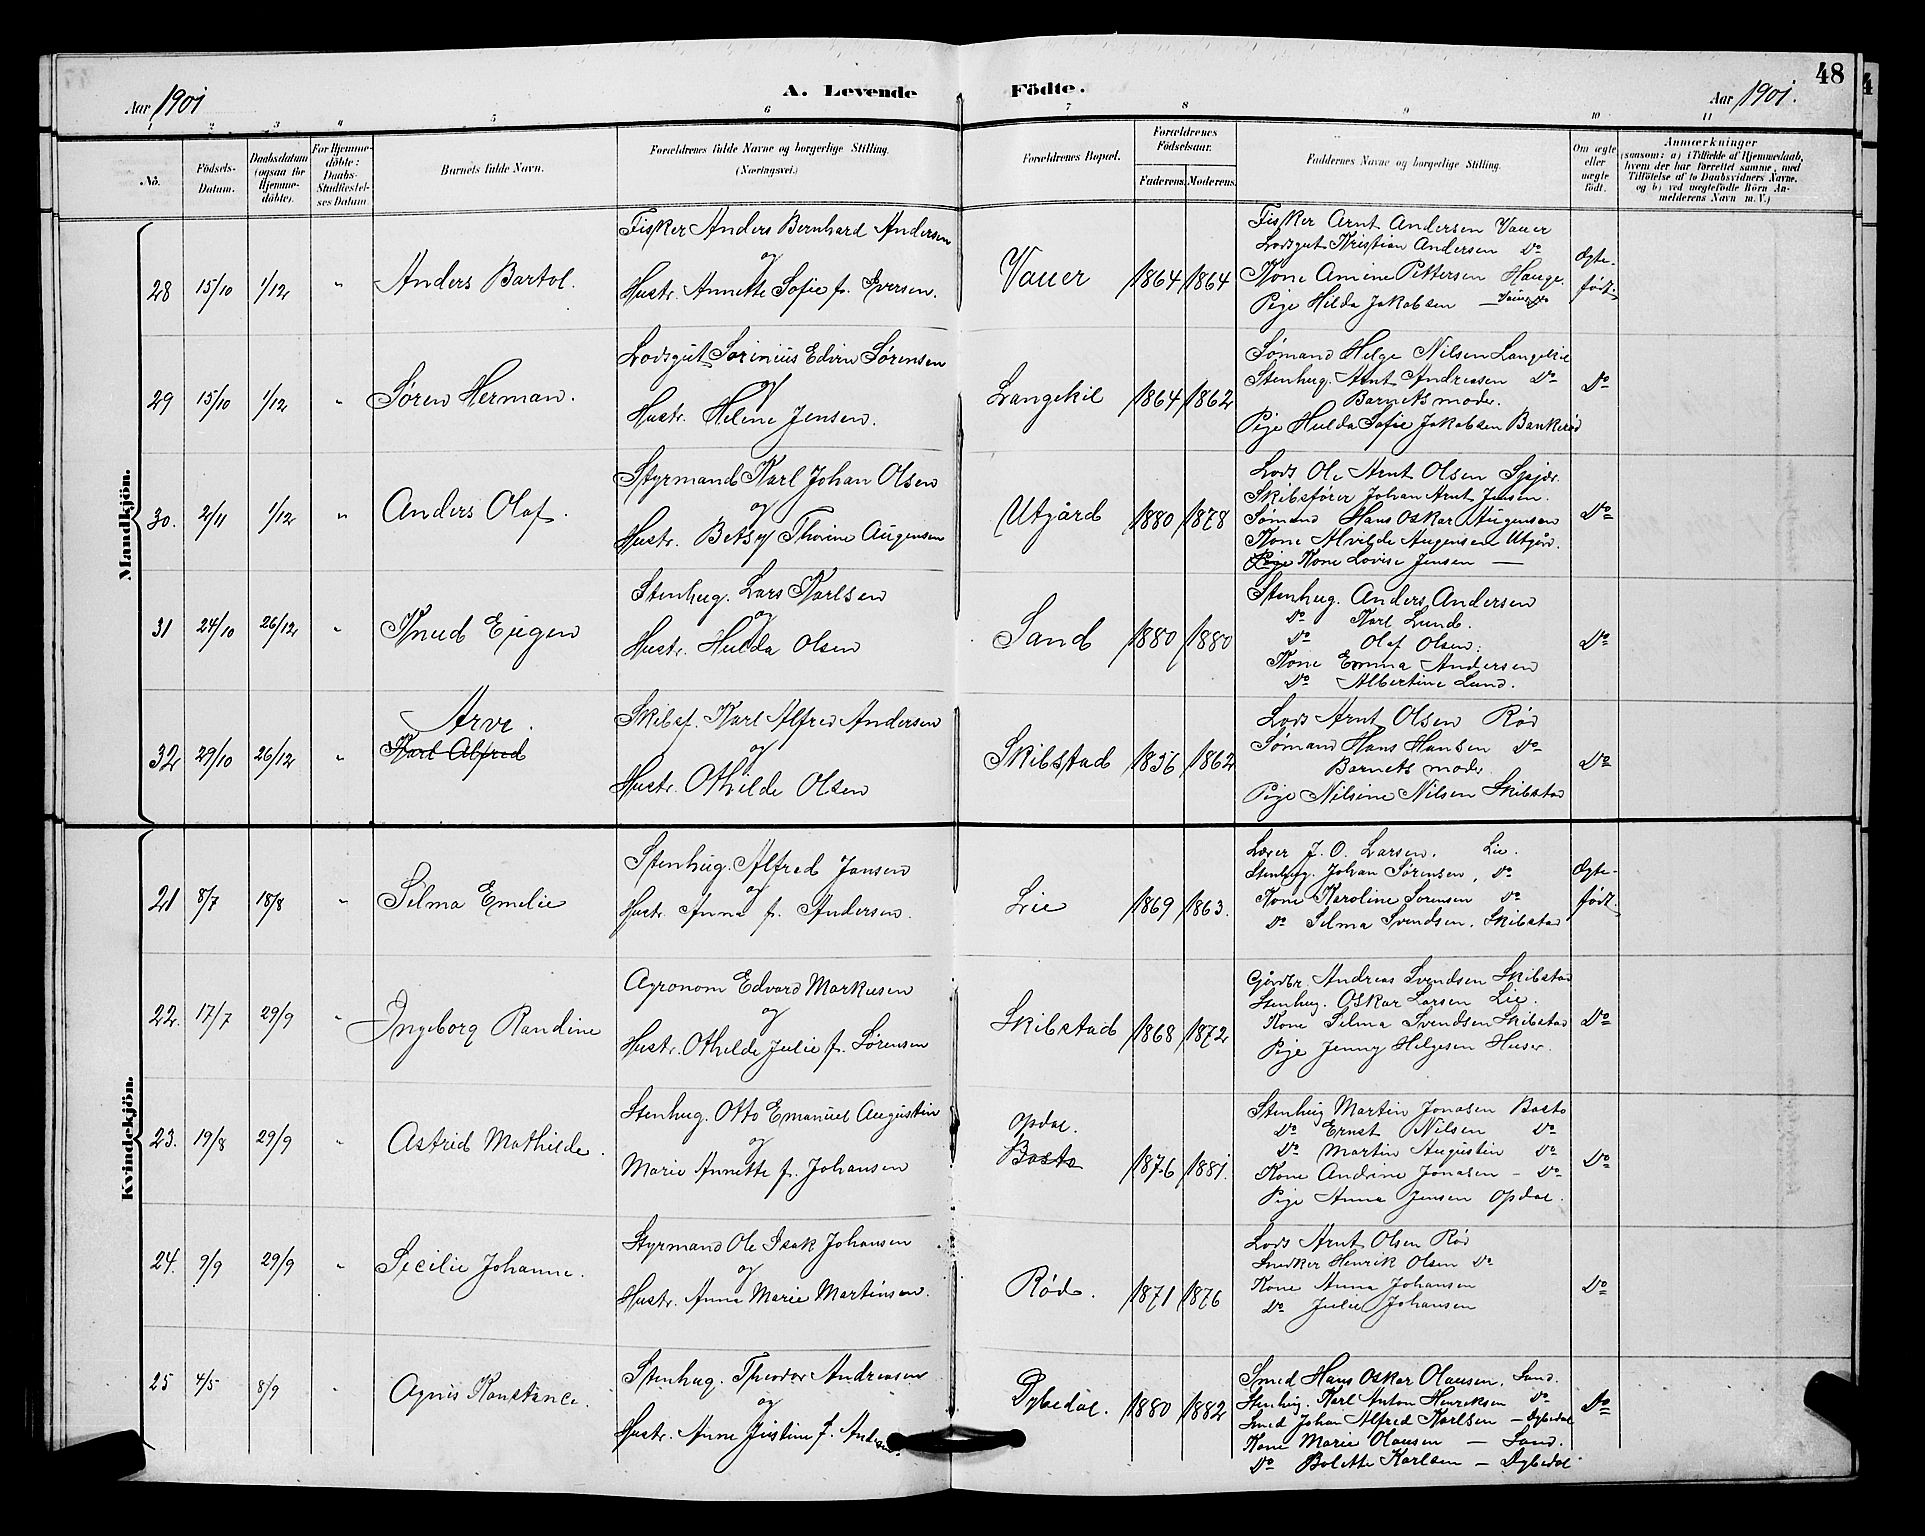 48
Aar 1901
A. Levende Födte.
Aar 1901.
1 2 3 4 5 6 7 8 9 10 11
No.
Födsels-
Datum.
Daabsdatum
(ogsaa for
Hjemme-
döbte).
For Hjemme-
döbte:
Daabs-
Stadfæstel-
ses Datum
Barnets fulde Navn.
Forældrenes fulde Navne og borgerlige Stilling.
(Næringsvei.)
Forældrenes Bopæl.
Forældrenes
Födselsaar.
Faderens. Moderens.
Faddernes Navne og borgerlige Stilling.
Om ægte
eller
uægte
födt.
Anmærkninger
(saasom: a) i Tilfælde af Hjemmedaab,
hvem der har forrettet samme, med
Tilföielse af to Daabsvidners Navne.
og b) ved uægtefödte Börn An-
melderens Navn m. V.)
Mandkjön.
28 15/10 1/12 " Anders Bartol.
Fisker Anders Bernhard Andersen
og
Hustr. Annette Sofie f. Iversen.
Vauer 1864 1864
Fisker Arnt Andersen Vauer
Lodsgut Kristian Andersen Do
Kone Amine Pettersen Hauge.
Pige Hilda Jakobsen — Vauer
Ægte-
født.
29 15/10 1/12 " Søren Herman.
Lodsgut Sorinius Edvin Sørensen
og
Hustr. Heline Jensen.
Langekil 1864 1862
Sømand Helge Nilsen Langekil
Stenhug. Arnt Andreasen Do
Barnets moder.
Pige Hulda Sofie Jakobsen Bankerød
Do
30. 2/11 1/12 " Anders Olaf.
Styrmand Karl Johan Olsen
og
Hustr. Betsy Thorine Augensen
Utgård 1880 1878
Lods Ole Arnt Olsen Spjær.
Skibsfører Johan Arnt Jensen.
Sømand Hans Oskar Augensen
Kone Alvilde Augensen Utgård.
Pige Kone Lovise Jensen —
Do
31 24/10 26/12 " Knud Eugen
Stenhug. Lars Karlsen
og
Hustr. Hulda Olsen
Sand 1880 1880
Stenhug. Anders Andersen
Do Karl Lund.
Do Olaf Olsen.
Kone Emma Andersen
Do Albertine Lund.
Do
32 29/10 26/12 " Arve.
Karl Alfred
Skibsf. Karl Alfred Andersen
og
Hustr. Othilde Olsen
Skibstad 1856 1862
Lods Arnt Olsen Rød
Sømand Hans Hansen Do
Barnets moder
Pige Nilsine Nilsen Skibstad
Do
Kvindekjön.
21 8/7 18/8 " Selma Emelie
Stenhug. Alfred Jansen
og
Hustr. Anna f. Andersen.
Lie 1869 1863.
Lærer J. O. Larsen. Lie.
Stenhug. Johan Sørensen, Do
Kone Karoline Sørensen Do
Do Selma Svendsen. Skibstad
Ægte-
født.
22. 17/7 29/9 " Ingeborg Randine
Agronom Edvard Markusen
og
Hustr. Othilde Julie f. Sørensen
Skibstad 1868 1872
Gårdbr. Andreas Svendsen Skibstad
Stenhug. Oskar Larsen Lie.
Kone Selma Svendsen Skibstad
Pige Jenny Helgesen Huser.
Do
23. 19/8 29/9 " Astrid Mathilde.
Stenhug. Otto Emanuel Augustin
og
Marie Annette f. Johansen
Opdal.
Basto 1876 1881.
Stenhug Martin Jonasen Basto
Do Ernst Nilsen Do
Do Martin Augustin Do
Kone Andrine Jonasen - Do
Pige Anna Jensen Opdal.
Do
24. 9/9 29/9 " Secilie Johanne.
Styrmand Ole Isak Johansen
og
Hustr. Anna Marie Martinsen.
Rød. 1871 1876
Lods Arnt Olsen Rød
Snedker Henrik Olsen Do
Kone Anna Johansen
Do Julie Johansen
Do
25 4/5 8/9 " Agnis Konstance.
Stenhug. Theodor Andreasen
og
Hustr. Anne Justine f.
Dybedal. 1880 1882
Smed Hans Oskar Olausen. Sand.
Stenhug. Karl Anton Henriksen Do
Smed Johan Alfred Karlsen — Dybedal
Kone Marie Olausen — Sand.
Do Bolette Karlsen — Dybedal
Do